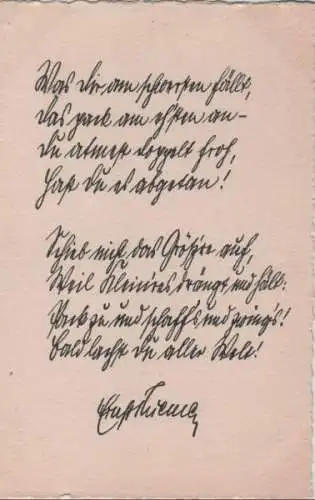 Was Dir am schwersten fällt,
das pack am ehsten an –
Du atmest doppelt froh,
Hast Du es abgetan!
Schieb nicht das Größre auf,
Weil Kleinres drängt und hält:
Pack zu und schaff's und zwing's!
Bald lachst Du aller Welt!
Ernst Thiema